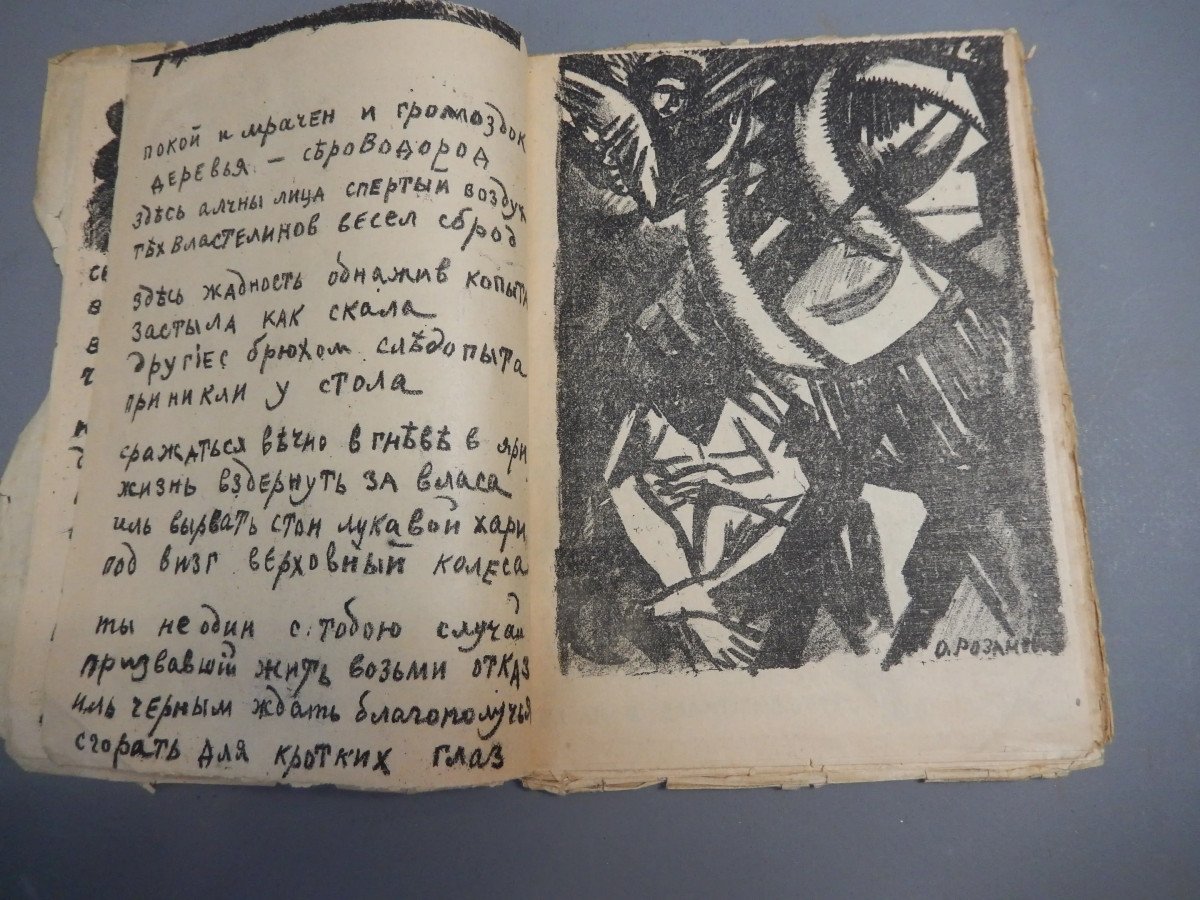 покой и мрачен и громоздок
деревья — сѣроводород
здѣсь алчны лица спертый воздух
тѣх властелинов весел сброд
здѣсь жадность обнажив копыта
застыла как скала
другіес брюхом слѣдопыта
приникли у стола
сражаться вѣчно в гнѣвѣ в яри
жизнь вздернуть за власа
иль вырвать стон лукавой хари
под визг верховный колеса
ты не один с тобою случай
призвавшій жить возьми отказ
иль черным ждать благополучья
сгорать для кротких глаз
О. РОЗАНОВ